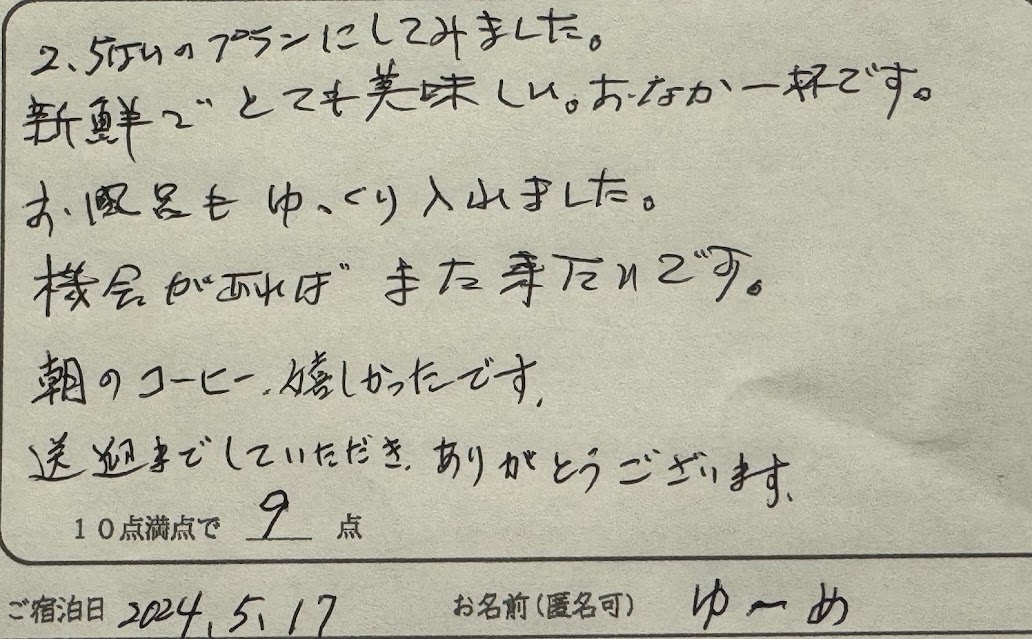 2.5はいのプランにしてみました。
新鮮でとても美味しい。おなか一杯です。
お風呂もゆっくり入れました。
機会があればまた来たいです。
朝のコーヒー、嬉しかったです、
送迎までしていただき、ありがとうございます、
10点満点で 9 点
ご宿泊日 2024.5.17 お名前(匿名可) ゆ〜め